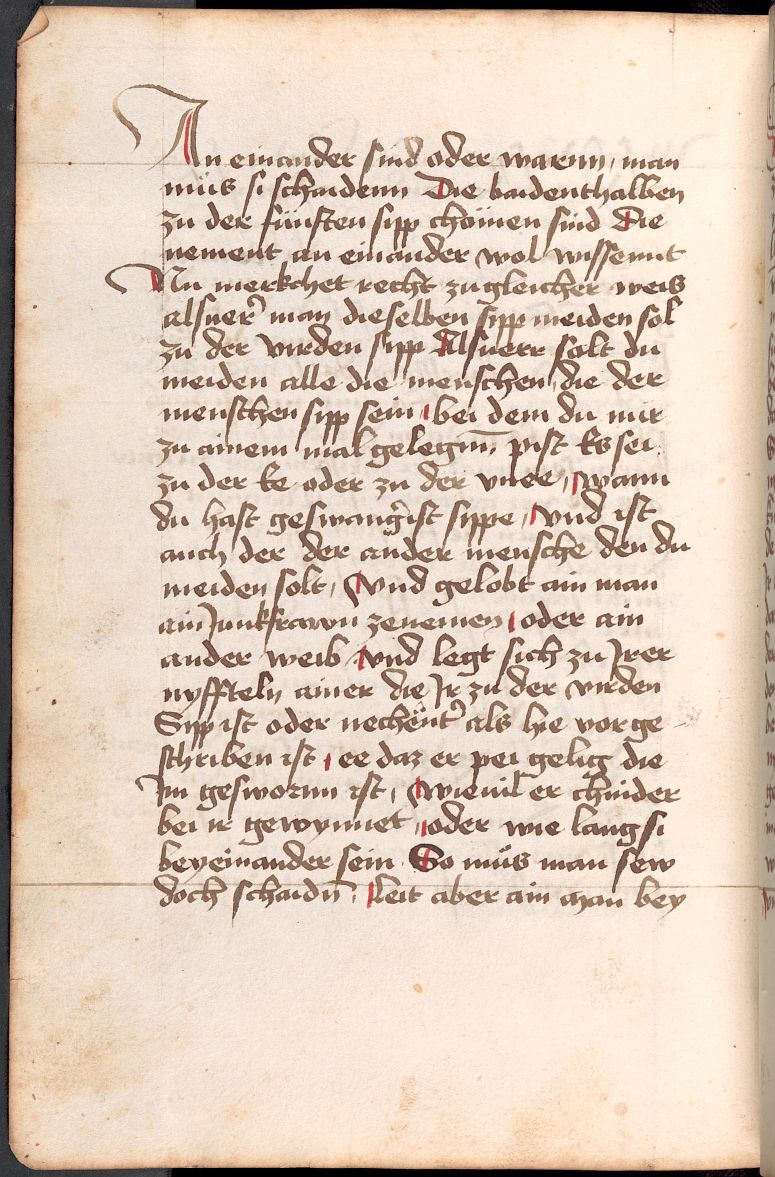 An einander sind oder warnn, man
müs si schaidenn Die baidenthalben
zu der fünften sipp chömen sind Die
nement an einander wol wissennt
Nu merkchet recht zugleicher weis
alsuer man dieselben sipp meiden sol
zu der virden sipp Alsuerr solt du
meiden alle die menschen, die der
menschen sipp sein, bei dem du nur
zu ainem mal gelegnn pist Es sei
zu der Ee oder zu der vnee, wann
du hast geswangerist sippe, Vnd ist
auch der der ander mensche den du
meiden solt, Vnd gelobt ain man
ain Junkfrawn zenemen, oder ain
ander weib Vnd legt sich zu Irer
nyffteln ainer die Ir zu der virden
Sipp ist oder nechënter als hie vor ge
schriben ist, ee daz er pei gelig die
Im geswornn ist, wieuil er chinder
bei ir gewynnet, oder wie lang si
beyeinander sein So müs man sew
doch schaidn, Leit aber ain man bey